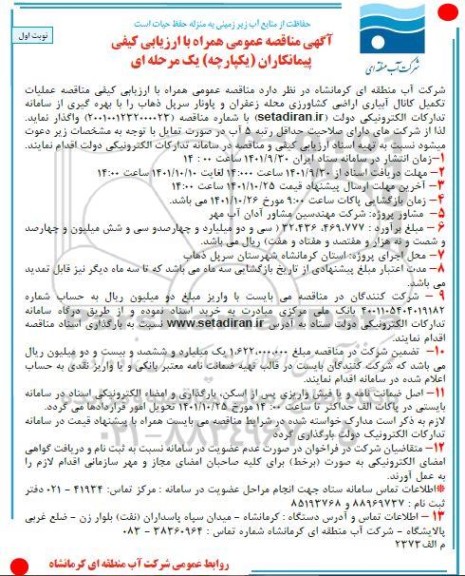 حفاظت از منابع آب زیر زمینی به منزله حفظ حیات است
نوبت اول
آگهی مناقصه عمومی همراه با ارزیابی کیفی
پیمانکاران (یکپارچه) یک مرحله ای
شرکت آب منطقه ای
شرکت آب منطقه ای کرمانشاه در نظر دارد مناقصه عمومی همراه با ارزیابی کیفی مناقصه عملیات
تکمیل کانال آبیاری اراضی کشاورزی محله زعفران و پاونار سرپل ذهاب را با بهره گیری از سامانه
تدارکات الکترونیکی دولت (setadiran.ir) با شماره مناقصه (۲۰۰۱۰۰۱۲۳۲۰۰۰۰۲۳) واگذار نماید.
لذا از شرکت های دارای صلاحیت حداقل رتبه ۵ آب در صورت تمایل با توجه به مشخصات زیر دعوت
میشود نسبت به تهیه اسناد ارزیابی کیفی و مناقصه در سامانه تدارکات الکترونیکی دولت اقدام نمایند.
۱–زمان انتشار در سامانه ستاد ایران ۱۴۰۱/۹/۳۰ ساعت ۰۰ : ۱۴
۲– مهلت دریافت اسناد از ۱۴۰۱/۹/۳۰ ساعت ۱۴:۰۰۰ لغایت ۱۴۰۱/۱۰/۱۰ ساعت ۱۴:۰۰
۳– آخرین مهلت ارسال پیشنهاد قیمت ۱۴۰۱/۱۰/۲۵ ساعت ۱۴:۰۰
۴– زمان بازگشایی پاکات ساعت ۹:۰۰ مورخ ۱۴۰۱/۱۰/۲۶ می باشد.
۵– مشاور پروژه: شرکت مهندسین مشاور آدان آب مهر
۶– مبلغ برآورد : ۳۲،۴۳۶،۴۶۹،۷۷۷ ( سی و دو میلیارد و چهارصدو سی و شش میلیون و چهارصد
و شصت و نه هزار و هفتصد و هفتاد و هفت) ریال می باشد.
۷– محل اجرای پروژه: استان کرمانشاه شهرستان سرپل ذهاب
۸– مدت اعتبار مبلغ پیشنهادی از تاریخ بازگشایی سه ماه می باشد که تا سه ماه دیگر نیز قابل تمدید
می باشد.
۹– شرکت کنندگان در مناقصه می بایست با واریز مبلغ دو میلیون ریال به حساب شماره
۴۰۰۱۱۰۵۴۰۴۰۱۹۱۸۲ بانک ملی مرکزی مبادرت به خرید اسناد نموده و از طریق درگاه سامانه
تدارکات الکترونیکی دولت ستاد به آدرس www.setadiran.ir نسبت به بارگذاری اسناد مناقصه
اقدام نمایند.
۱۰– تضمین شرکت در مناقصه مبلغ ۱،۶۲۲،۰۰۰،۰۰۰ یک میلیارد و ششصد و بیست و دو میلیون ریال
می باشد که شرکت کنندگان بایست در قالب تهیه ضمانت نامه معتبر بانکی و یا واریز نقدی به حساب
اعلام شده در سامانه اقدام نمایند.
۱۱– اصل ضمانت نامه و یا فیش واریزی پس از اسکن، بارگذاری و امضاء الکترونیکی اسناد در سامانه
بایستی در پاکات الف حداکثر تا ساعت ۰۰: ۱۴ مورخ ۱۴۰۱/۱۰/۲۵ تحویل امور قراردادها می گردد.
لازم به ذکر است مدارک خواسته شده در شرایط مناقصه می بایست همراه با پیشنهاد قیمت در سامانه
تدارکات الکترونیک دولت بارگذاری گردد
۱۲– متقاضیان شرکت در فراخوان در صورت عدم عضویت در سامانه نسبت به ثبت نام و دریافت گواهی
امضای الکترونیکی به صورت (برخط) برای کلیه صاحبان امضای مجاز و مهر سازمانی اقدام لازم را
به عمل آورند.
*اطلاعات تماس سامانه ستاد جهت انجام مراحل عضویت در سامانه : مرکز تماس: ۴۱۹۳۴ – ۰۲۱ دفتر
ثبت نام : ۸۸۹۶۹۷۳۷ و ۸۵۱۹۳۷۶۸
۱۳ – اطلاعات تماس و آدرس دستگاه : کرمانشاه – میدان سپاه پاسداران (نفت) بلوار زن – ضلع غربی
پالایشگاه – شرکت آب منطقه ای کرمانشاه شماره تماس : ۳۸۳۶۰۹۶۴ – ۰۸۳
م الف ۲۳۷۲
روابط عمومی شرکت آب منطقه ای کرمانشاه